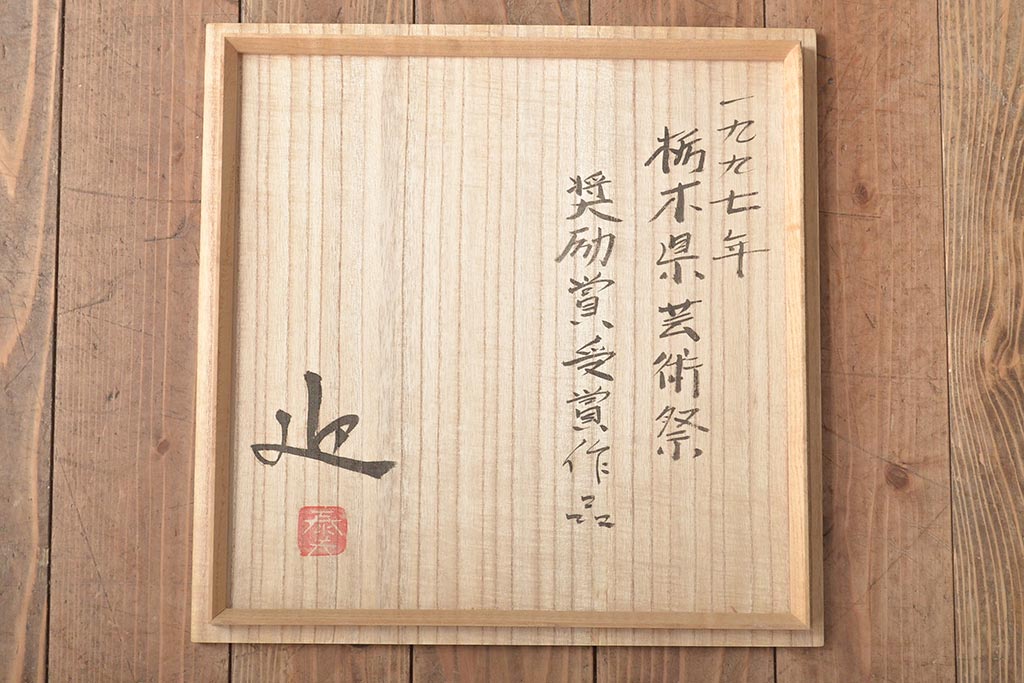 一九九七年
栃木県芸術祭
奨励賞受賞作品